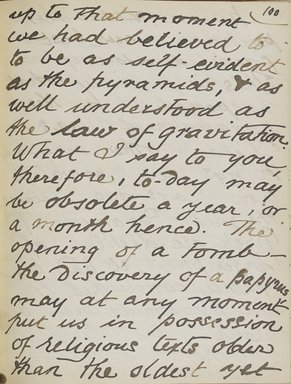 100
up to that moment
we had believed to
to be as self-evident
as the pyramids, & as
well understood as
the law of gravitation.
What I say to you,
therefore, to-day may
be obsolete a year, or
a month hence. The
opening of a tomb —
the discovery of a papyrus
may at any moment
put us in possession
of religious texts older
than the oldest yet